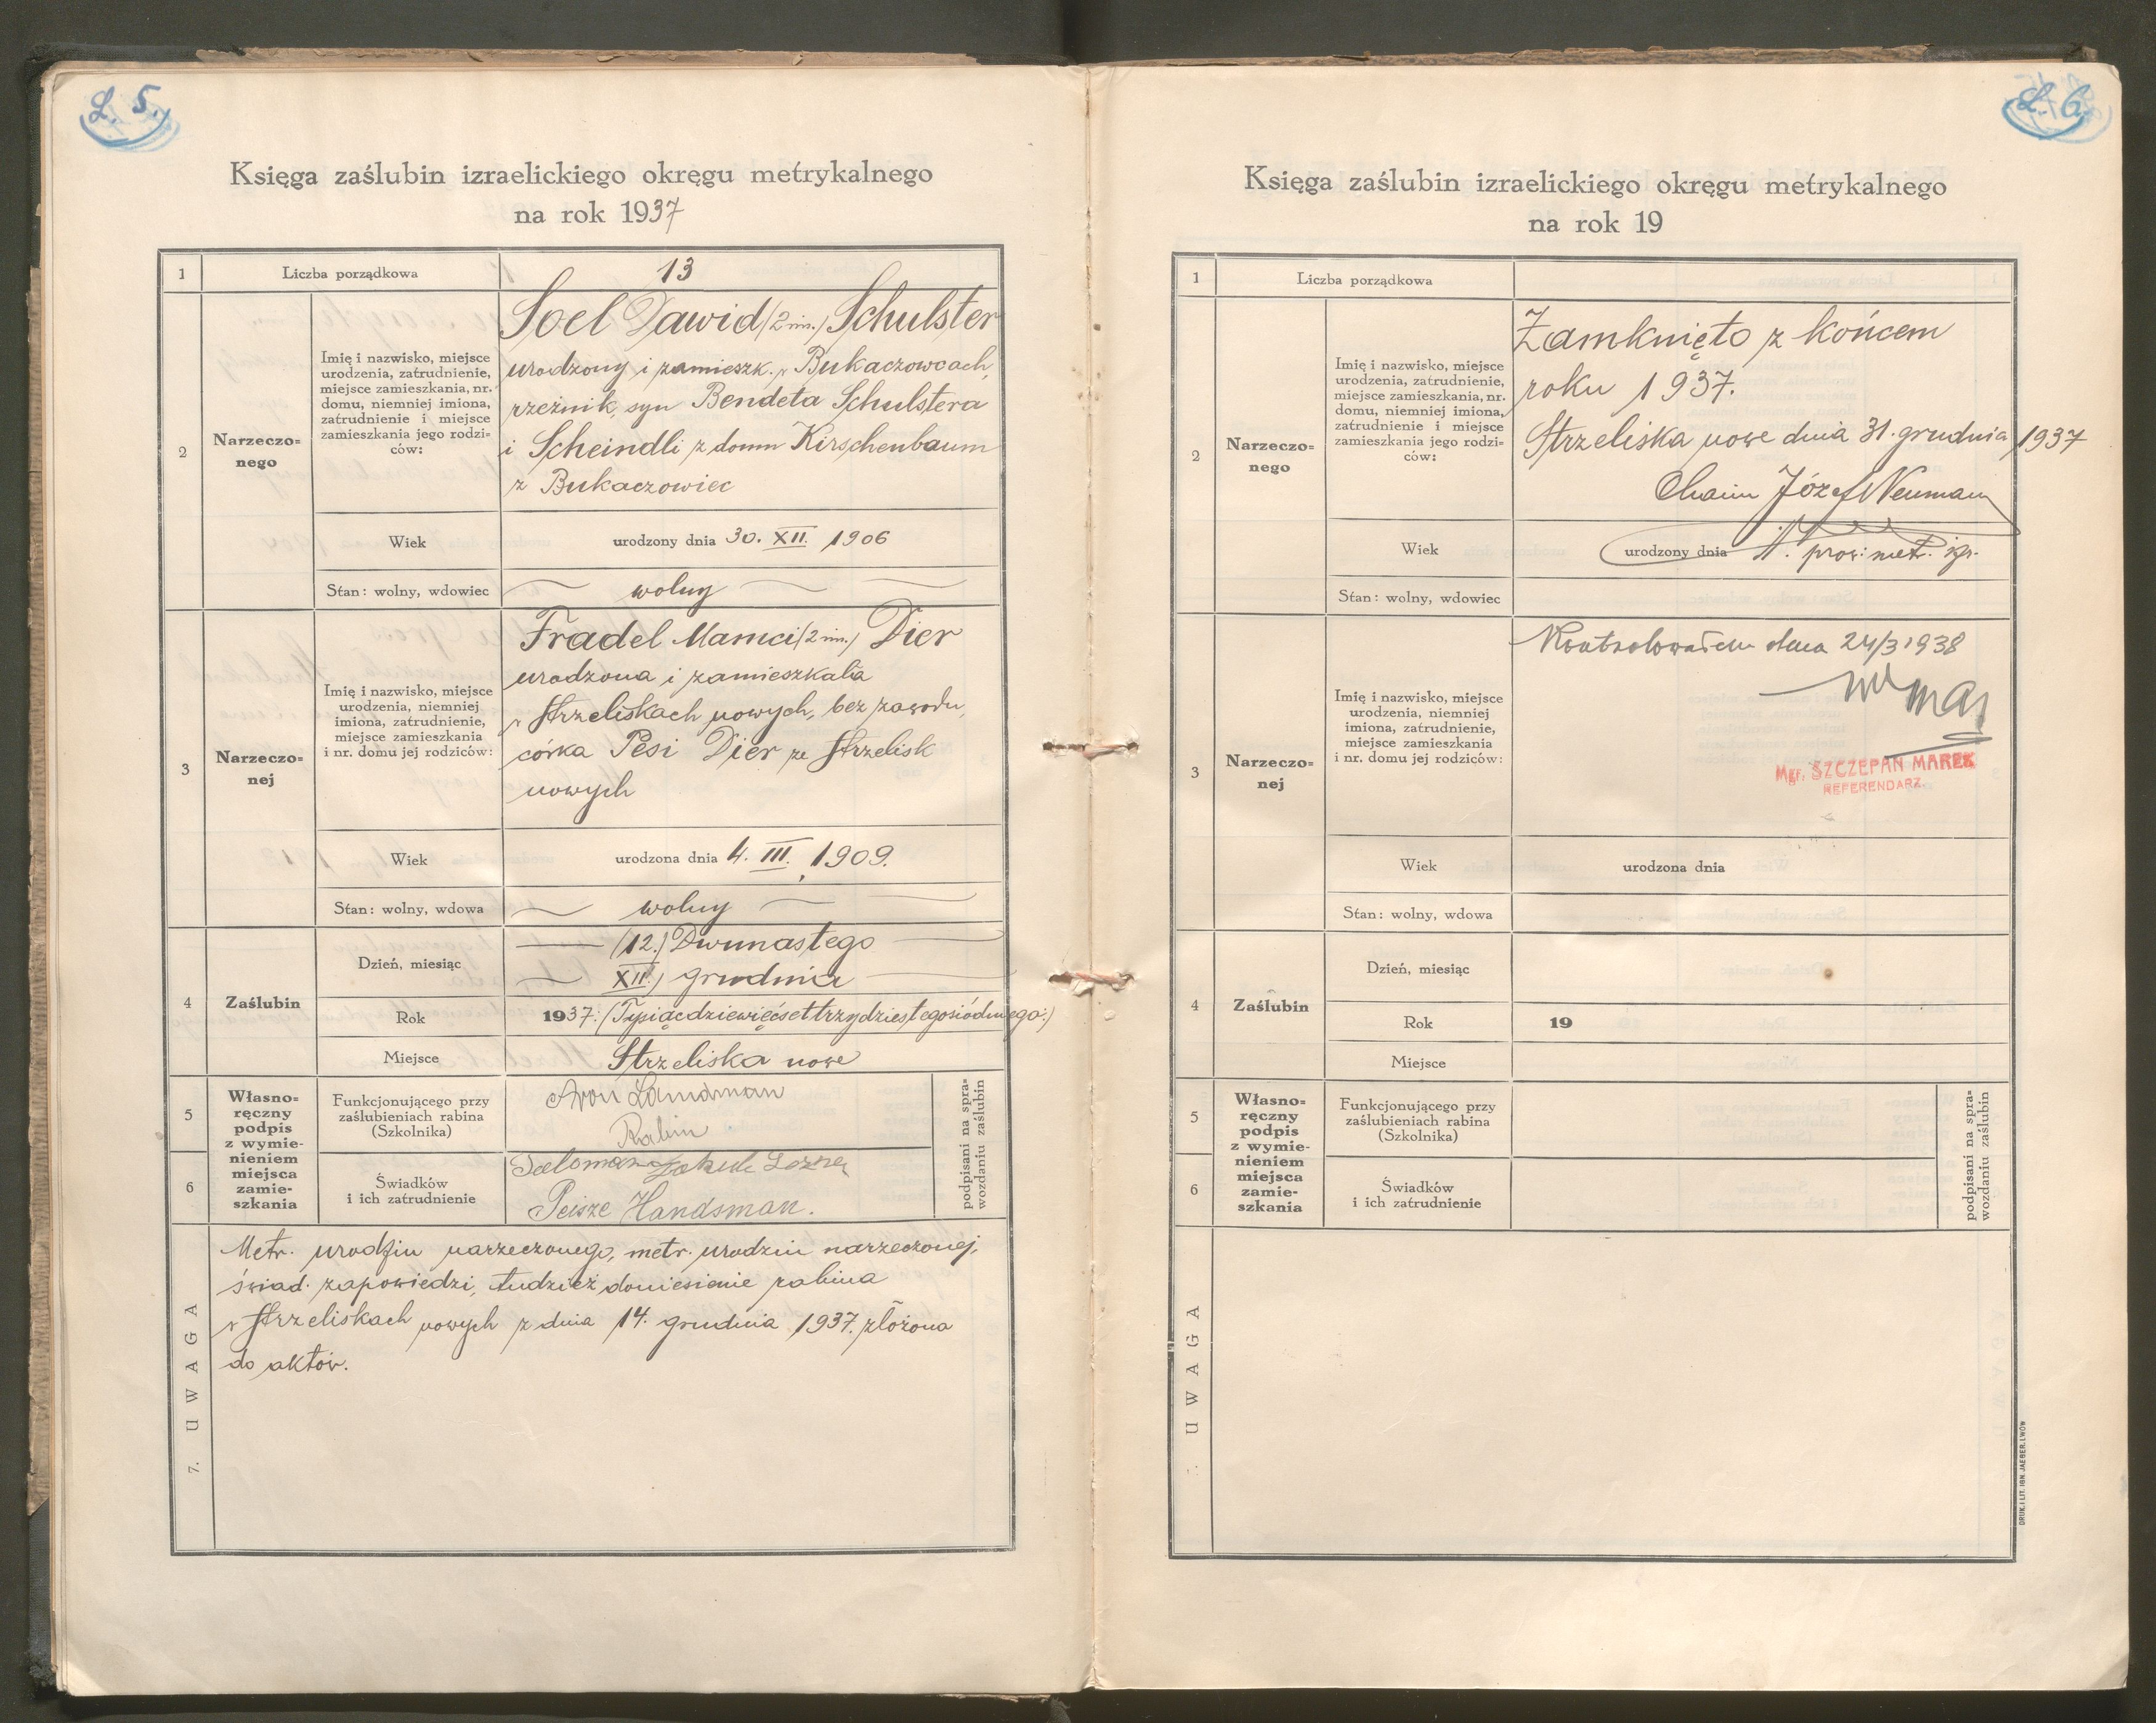 L. 5.
Księga zaślubin izraelickiego okręgu metrykalnego
na rok 1937
1 Liczba porządkowa 13
2 Narzeczo=
nego
Imię i nazwisko, miejsce
urodzenia, zatrudnienie,
miejsce zamieszkania, nr.
domu, niemniej imiona,
zatrudnienie i miejsce
zamieszkania jego rodzi=
ców:
Soel Dawid (2 im.) Schulster
urodzony i zamieszk. w Bukaczowcach,
rzeźnik, syn Bendeta Schulstera
i Scheindli z domu Kirschenbaum
z Bukaczowiec
Wiek urodzony dnia 30. XII. 1906
Stan: wolny, wdowiec wolny
3 Narzeczo=
nej
Imię i nazwisko, miejsce
urodzenia, niemniej
imiona, zatrudnienie,
miejsce zamieszkania
i nr. domu jej rodziców:
Fradel Mamci (2 im.) Dier
urodzona i zamieszkała
w Strzeliskach nowych, bez zawodu,
córka Pesi Dier ze Strzelisk
nowych
Wiek urodzona dnia 4. III. 1909.
Stan: wolny, wdowa wolny
4 Zaślubin
Dzień, miesiąc (12.) Dwunastego
XII.) grudnia
Rok 1937. (Tysiącdziewięćsettrzydziestegosiódmego.)
Miejsce Strzeliska nowe
5
6
Własno=
ręczny
podpis
z wymie=
nieniem
miejsca
zamie=
szkania
Funkcjonującego przy
zaślubieniach rabina
(Szkolnika)
Aron Landman
Rabin
Świadków
i ich zatrudnienie
Peisze Handsman.
podpisani na spra=
wozdaniu zaślubin
7. UWAGA
Metr. urodzin narzeczonego, metr. urodzin narzeczonej,
świad. zapowiedzi, tudzież doniesienie rabina
w Strzeliskach nowych z dnia 14. grudnia 1937. złożona
do aktów.
L. 6.
Księga zaślubin izraelickiego okręgu metrykalnego
na rok 19
1 Liczba porządkowa
2 Narzeczo=
nego
Imię i nazwisko, miejsce
urodzenia, zatrudnienie,
miejsce zamieszkania, nr.
domu, niemniej imiona,
zatrudnienie i miejsce
zamieszkania jego rodzi=
ców:
Zamknięto z końcem
roku 1937.
Strzeliska nowe dnia 31. grudnia 1937
Chaim Józef Neumann
Wiek urodzony dnia prow. metr. izr.
Stan: wolny, wdowiec
3 Narzeczo=
nej
Imię i nazwisko, miejsce
urodzenia, niemniej
imiona, zatrudnienie,
miejsce zamieszkania
i nr. domu jej rodziców:
Kontrolowałem dnia 24/3 1938
Mgr. SZCZEPAN MAREK
REFERENDARZ.
Wiek urodzona dnia
Stan: wolny, wdowa
4 Zaślubin
Dzień, miesiąc
Rok 19
Miejsce
5
6
Własno=
ręczny
podpis
z wymie=
nieniem
miejsca
zamie=
szkania
Funkcjonującego przy
zaślubieniach rabina
(Szkolnika)
Świadków
i ich zatrudnienie
podpisani na spra=
wozdaniu zaślubin
UWAGA
DRUK. I LIT. IGN. JAEGER. LWÓW